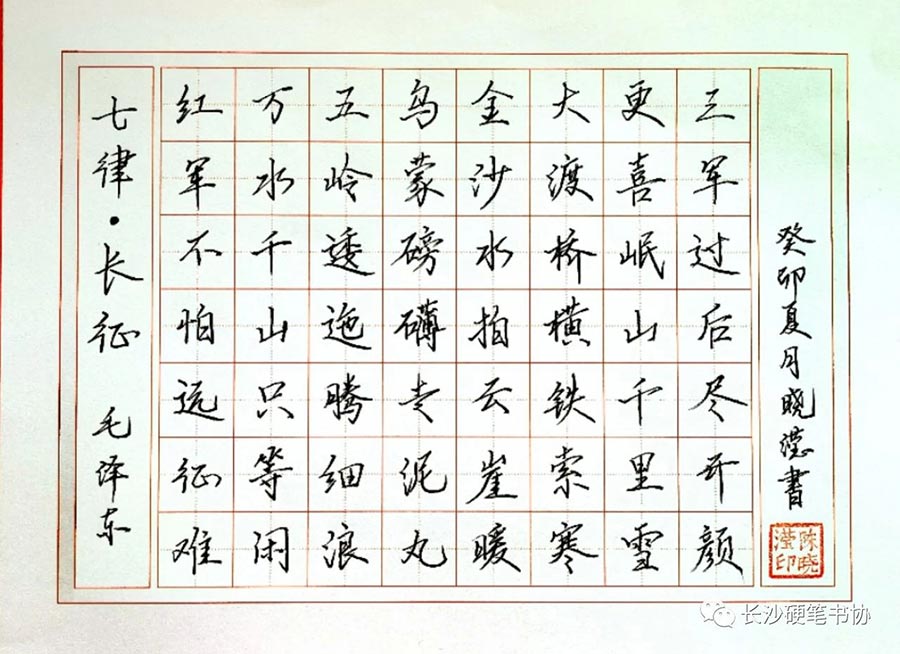 七律·长征 毛泽东
红军不怕远征难
万水千山只等闲
五岭逶迤腾细浪
乌蒙磅礴走泥丸
金沙水拍云崖暖
大渡桥横铁索寒
更喜岷山千里雪
三军过后尽开颜
癸卯夏月晓滢書
陈晓滢印
长沙硬笔书协